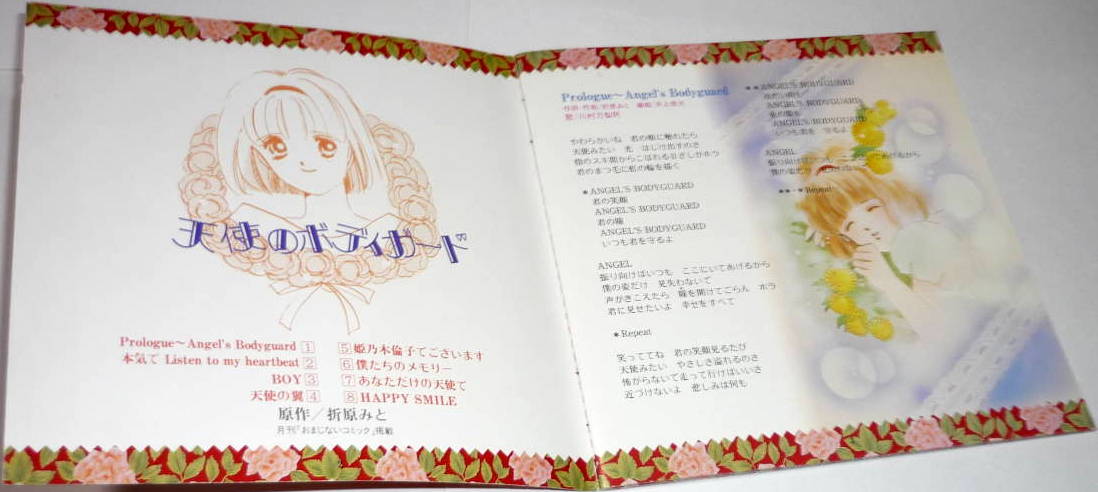 天使のボディガード
Prologue～Angel's Bodyguard 1
本気で Listen to my heartbeat 2
BOY 3
天使の翼 4
5 姫乃木倫子でございます
6 僕たちのメモリー
7 あなただけの天使で
8 HAPPY SMILE
原作／折原みと
月刊「おまじないコミック」掲載
Prologue～Angel's Bodyguard
やわらかいね 君の頬に触れたら
天使みたい 光 はじけ出すのさ
指のスキ間からこぼれる日ざしがホラ
君のまつ毛に虹の輪を描く
＊ANGEL'S BODYGUARD
君の笑顔
ANGEL'S BODYGUARD
君の瞳
ANGEL'S BODYGUARD
いつも君を守るよ
ANGEL
振り向けばいつも ここにいてあげるから
僕の姿だけ 見失わないで
声がきこえたら 瞳を開けてごらん ホラ
君に見せたいよ 幸せをすべて
＊Repeat
笑っててね 君の笑顔見るたび
天使みたい やさしさ溢れるのさ
怖がらないで走って行けばいいさ
近づけないよ 悲しみは何も
＊＊ANGEL'S BODYGUARD
ANGEL'S BODYGUARD
ANGEL'S BODYGUARD
いつも君を 守るよ
ANGEL
振り向けばいつも ここにいてあげるから
＊＊・＊Repeat